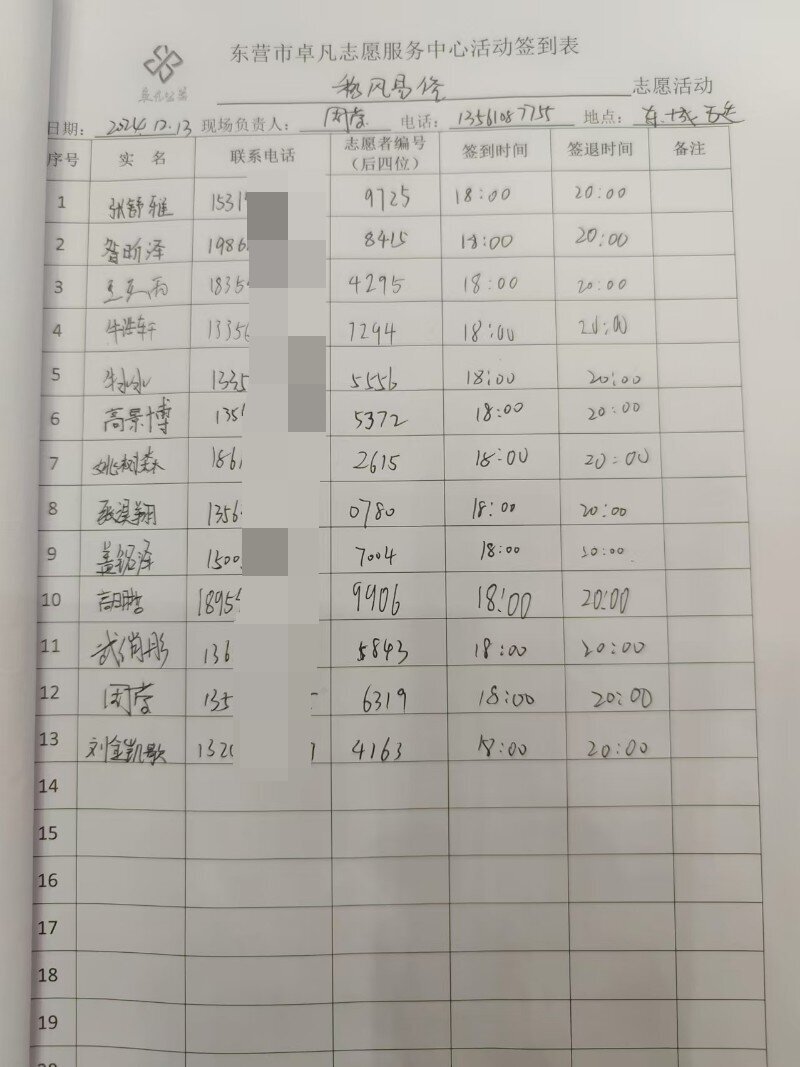 东营市卓凡志愿服务中心活动签到表
志愿活动
日期： 2024.12.13 现场负责人： 闵蕾 电话： 13561087755 地点： 东城
序号 实 名 联系电话 志愿者编号（后四位） 签到时间 签退时间 备注
1 张舒雅 1531 9725 18:00 20:00
2 昝昕泽 1986 8415 18:00 20:00
3 雨 1835 4295 18:00 20:00
4 牛浩轩 13356 7294 18:00 20:00
5 牛冰冰 1335 5556 18:00 20:00
6 高景博 135 5372 18:00 20:00
7 姚树森 186 2615 18:00 20:00
8 翔 1356 0780 18:00 20:00
9 盖铭泽 1500 7004 18:00 20:00
10 1895 9906 18:00 20:00
11 武俏彤 136 5843 18:00 20:00
12 135 6319 18:00 20:00
13 刘金凯歌 132 4163 18:00 20:00
14
15
16
17
18
19